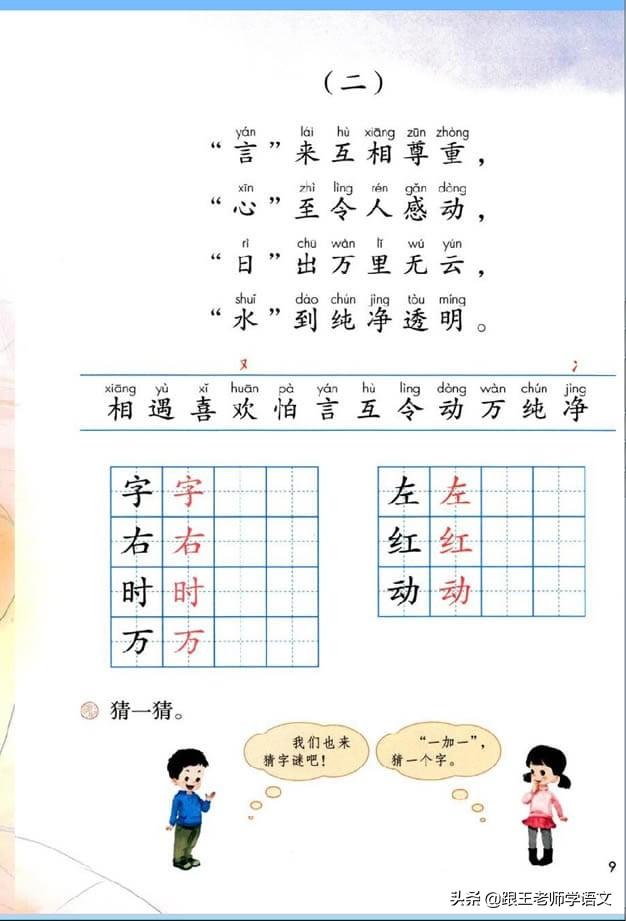 （二）
yán lái hù xiāng zūn zhòng
“言”来互相尊重，
xīn zhì lìng rén gǎn dòng
“心”至令人感动，
rì chū wàn lǐ wú yún
“日”出万里无云，
shuǐ dào chún jìng tòu míng
“水”到纯净透明。
又 冫
xiāng yù xǐ huān pà yán hù lìng dòng wàn chún jìng
相遇喜欢怕言互令动万纯净
字 字 左 左
右 右 红 红
时 时 动 动
万 万
猜一猜。
我们也来
猜字谜吧！
“一加一”，
猜一个字。
9
头条 @跟王老师学语文